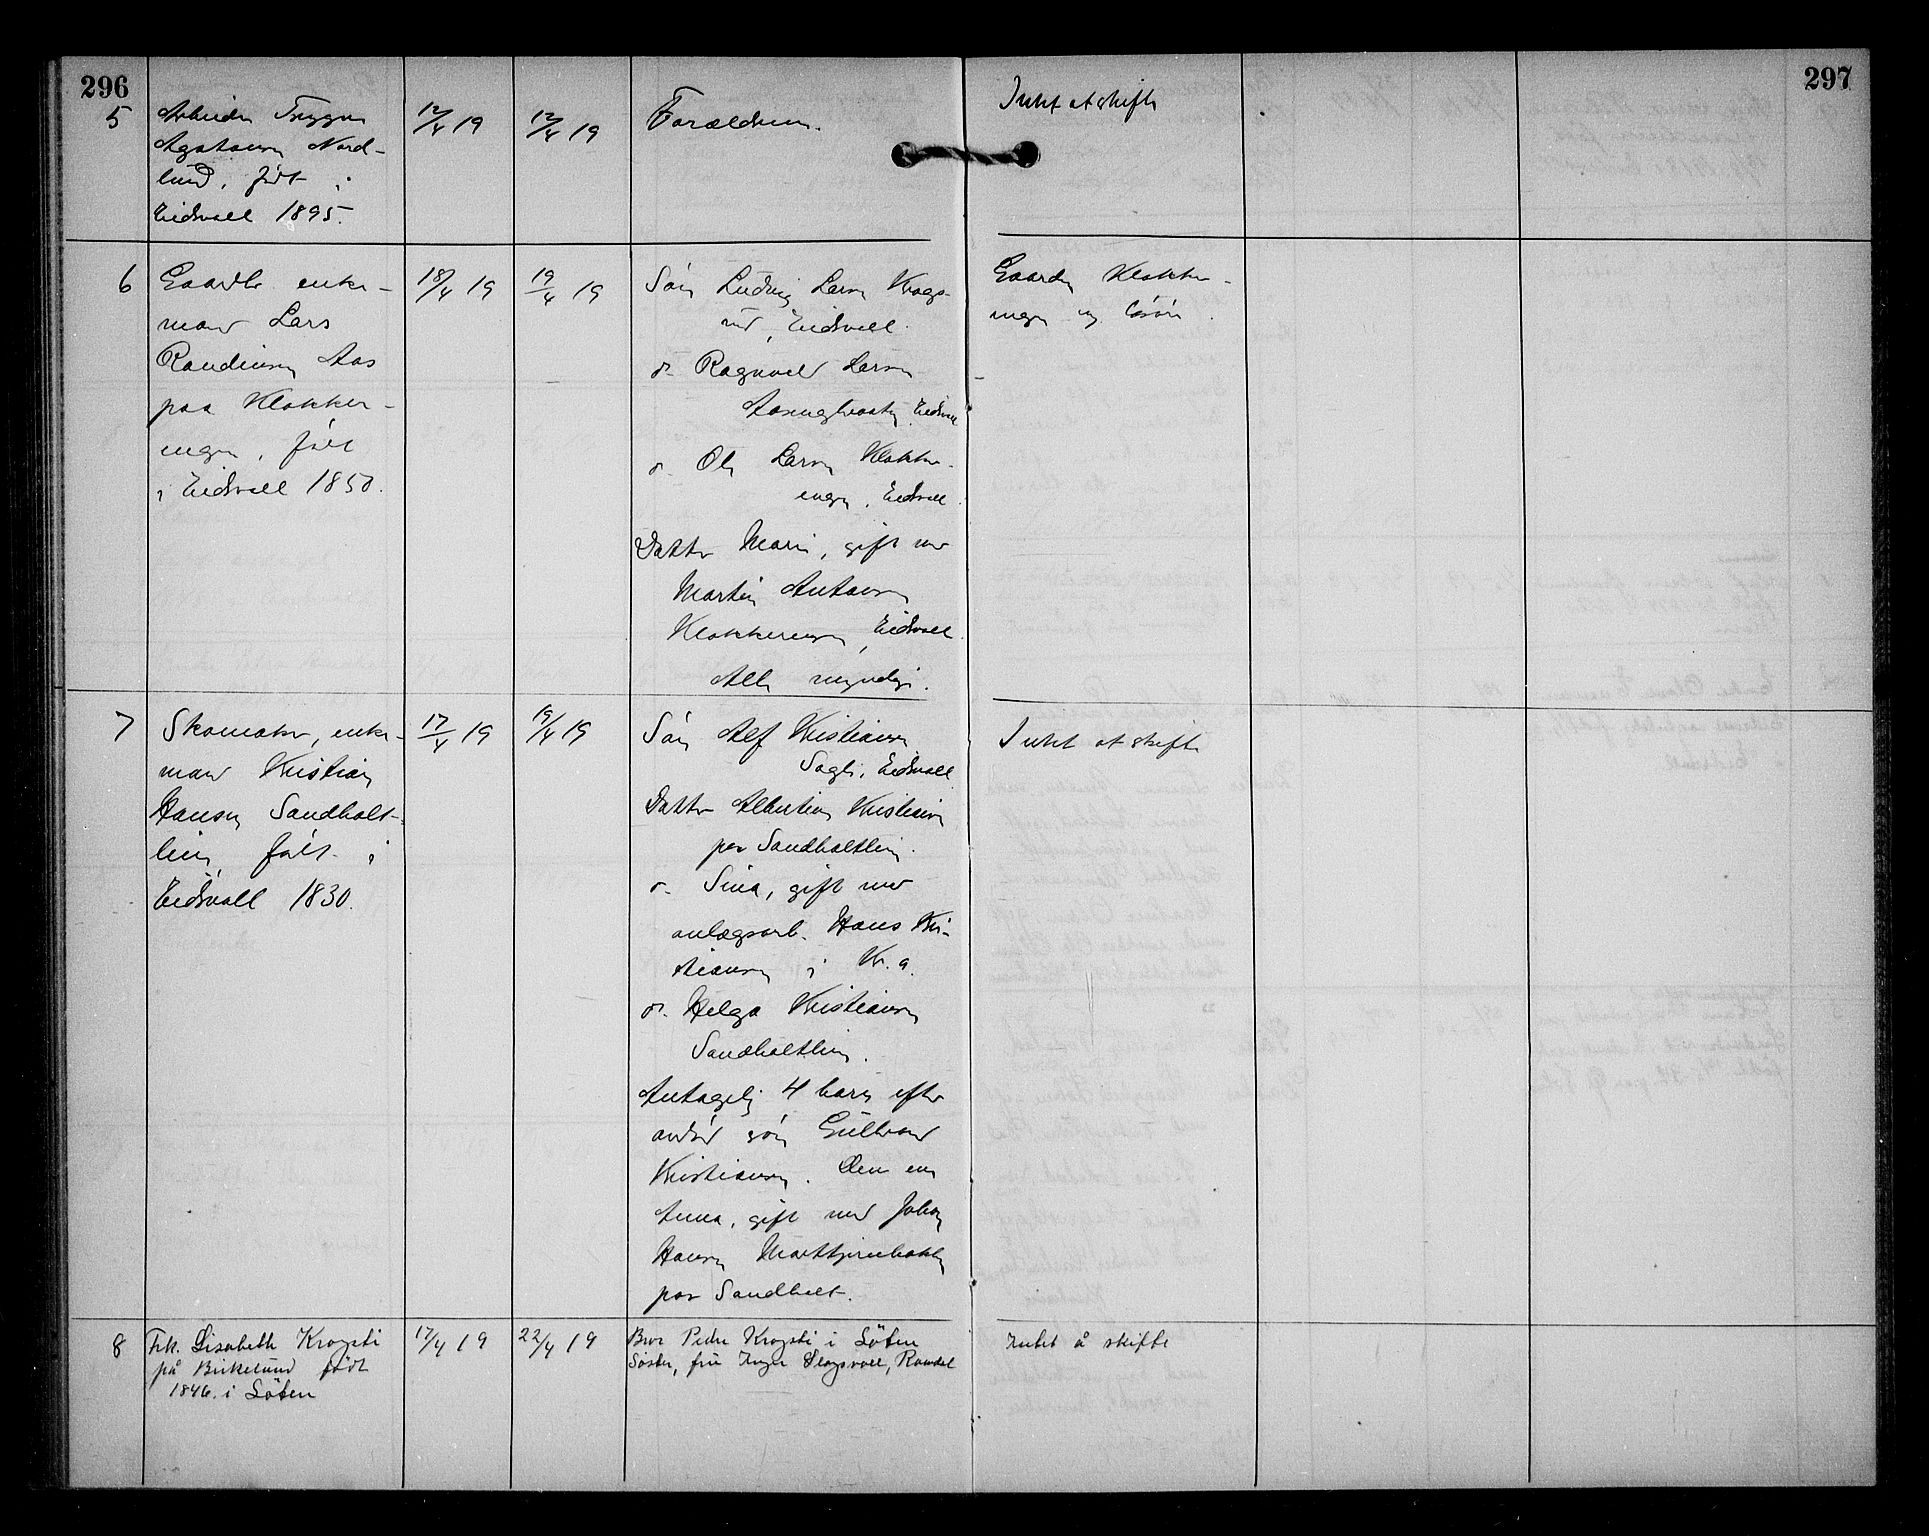 296
297
5
Arbeider Trygve
Agatonsen Nord-
lund, født i
Eidsvoll 1895.
12/4 19
12/4 19
Forældrene.
Intet at skifte
6
Gaardbr. enke-
mand Lars
Paa Klokker-
engen, født
i Eidsvoll 1850.
18/4 19
19/4 19
Søn Ludvig Larsen Krogs-
rud, Eidsvoll.
d. Ragnvald Larsen
Eidsvoll
d. Ole Larsen Klokker-
engen, Eidsvoll.
Datter Marie, gift med
Martin Antonsen
Klokkerengen, Eidsvoll
Alle myndige.
Gaarden Klokker-
engen og løsøre.
7
Skomaker, enke-
mand Kristian
Hansen Sandholt-
lien, født i
Eidsvoll 1830.
17/4 19
19/4 19
Søn Alf Kristiansen
Sagli, Eidsvoll
Datter Albertine Kristiansen
paa Sandholtlien.
d. Sina, gift med
anlægsarb. Hans Kri-
stiansen i Kr.a.
d. Helga Kristiansen
Sandholtlien.
Antagelig 4 barn efter
avdød søn Gulbrand
Kristiansen. Den ene
Anna, gift med Johan
Hansen
paa Sandholt.
Intet at skifte
8
Frk. Lisabeth Krogsti
på Birkelund født
1846. i Löten
17/4 19
22/4 19
Bror Peder Krogsti i Löten
Søster, fru Inger Romdal
Intet å skifte